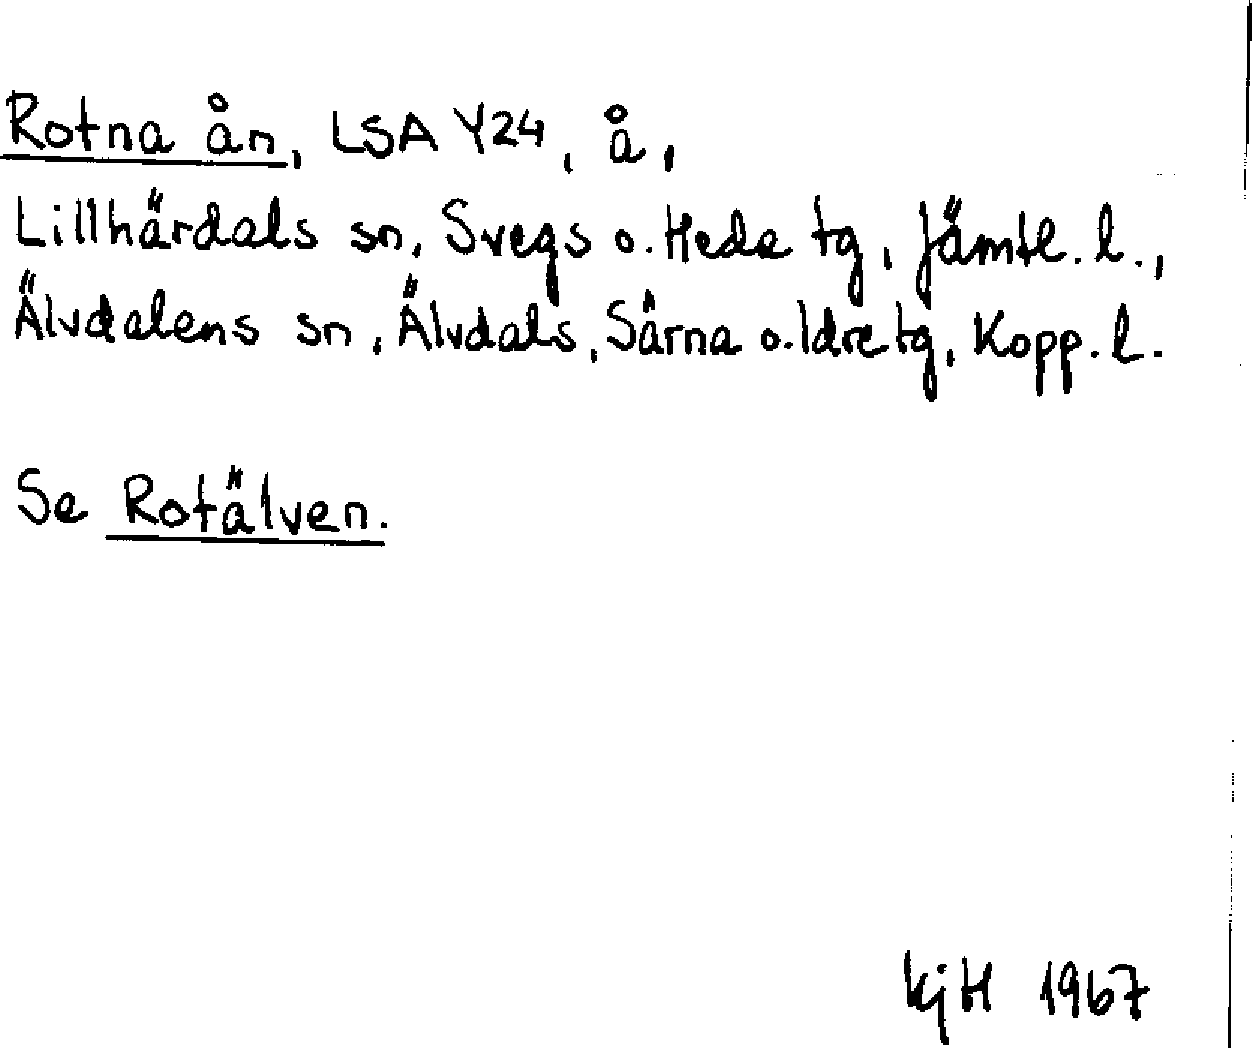 Rotna ån, LSA Y24, å,
Lillhärdals sn, Svegs o. Hede tg, Jämtl. l.,
Älvdalens sn, Älvdals, Särna o. Idre tg, Kopp. l.
Se Rotälven.
KjH 1967